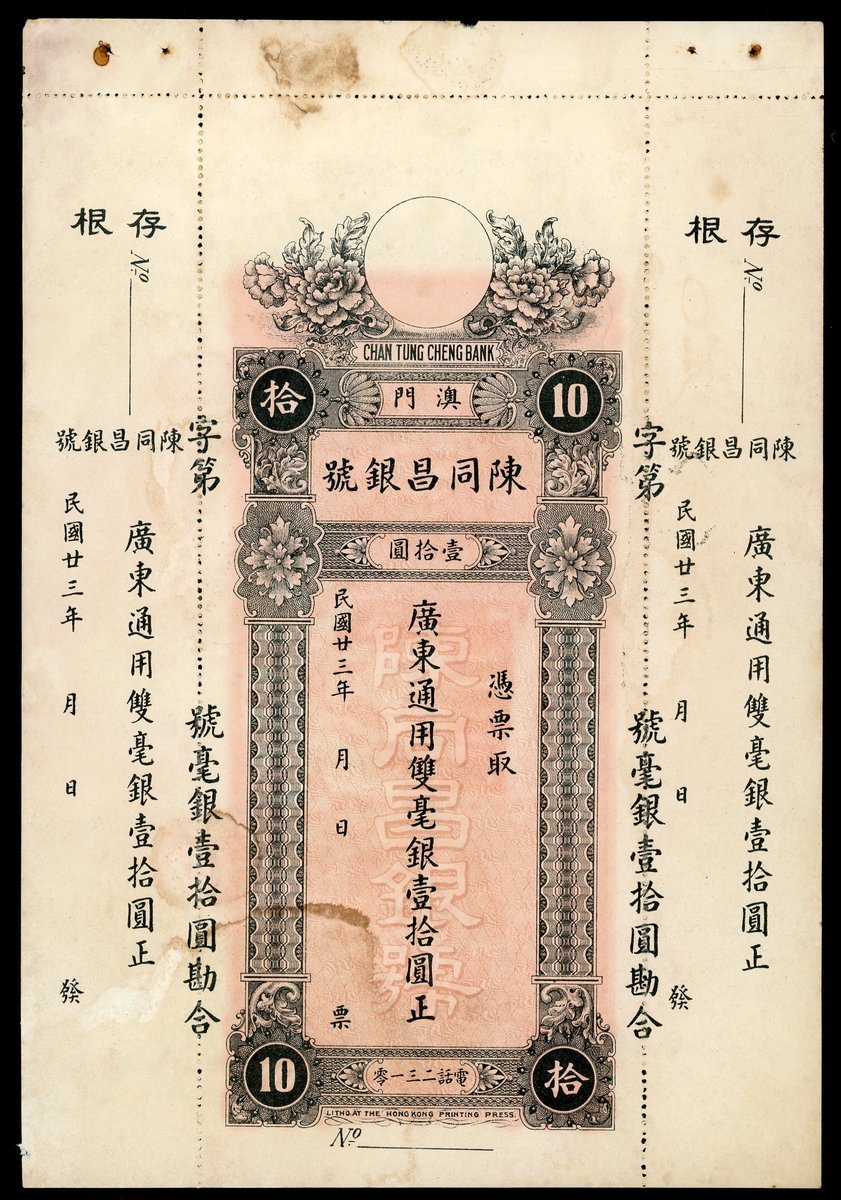 存根
No
陳同昌銀號
廣東通用雙毫銀壹拾圓正
民國廿三年 月 日 發
字第 號毫銀壹拾圓勘合
CHAN TUNG CHENG BANK
拾
澳門
10
陳同昌銀號
壹拾圓
憑票取
廣東通用雙毫銀壹拾圓正
民國廿三年 月 日 票
陳同昌銀號
10
電話二三一零
拾
LITHO. AT THE HONG KONG PRINTING PRESS.
No
字第 號毫銀壹拾圓勘合
存根
No
陳同昌銀號
廣東通用雙毫銀壹拾圓正
民國廿三年 月 日 發